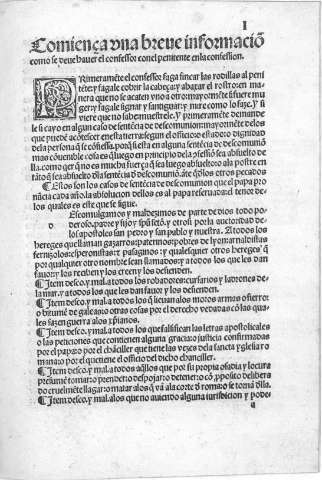 I
Comiença vna breue informaciō
como se deue hauer el confessor con el penitente en la confession.
PRimeramēte el confessor faga fincar las rodillas al peni
tēte y fagale cobrir la cabeça y abaxar el rostro en ma
nera que no se acatē vno a otro mayormēte si fuere mu
ger y fagale signar y santiguar: y mire como lo faze. y si
viere que no sabe muestrele. y primeramēte demande
le si cayo en algun caso de sentēcia de descomunion: mayormēte delos
que puedē acōtescer en esta tierra segun el officio estado o dignidad
dela persona q̄ se cōfiessa. porq̄ si esta en alguna sentēcia de descomuniō
mas cōuenible cosa es q̄ luego en principio dela cōfessiō sea absuelto de
lla. como q̄er q̄ no es mucha fuerça q̄ sea luego absuelto o ala postre en
tāto q̄ sea absuelto dla sentēcia d̄ descomuniō. āte q̄ d̄los otros pecados
¶ Estos son los casos de sentēcia de descomunion que el papa pro
nūcia cada año. la absolucion dellos es al papa reseruada: el tenor de
los quales es este que se sigue.
DEscomulgamos y maldezimos de parte de dios todo po
deroso. padre y fijo y spū scō. y otrosi por la auctoridad de
los apostoles san pedro y san pablo y nuestra. A todos los
hereges que llaman gazarros: paterinos: pobres de lyon: arnaldistas
speronistas: y passaginos: y qualesquier otros hereges q̄
por qualquier otro nombre sean llamados: y a todos los que les dan
fauor: y los reciben y los creen y los defienden.
¶ Item desco. y mal. a todos los robadores: cursarios y ladrones de
la mar. y a todos los que les dan fauor y los defienden.
¶ Item desco. y mal. a todos los q̄ lieuan alos moros armas o fierro:
o de galea: o otras cosas por el derecho vedadas cō las qua
les fazen guerra alos xp̄ianos.
¶ Item desco. y mal. a todos los que falsifican las letras apostolicales
o las peticiones que contienen alguna gracia o justicia confirmadas
por el papa: o por el chāciller que tiene las vezes dela sancta yglesia ro
mana: o por el que tiene el officio del dicho chanciller.
¶ Item desco. y mal. a todos aq̄llos que por su propia osadia y locura
presumē tomar: o prender: o despojar: o detener: o cō proposito delibera
do cruelmēte llagar: o matar alos q̄ vā ala corte d̄ roma: o se tornā d̄lla.
¶ Item desco. y mal. alos que no auiendo alguna jurisdicion y pode
a